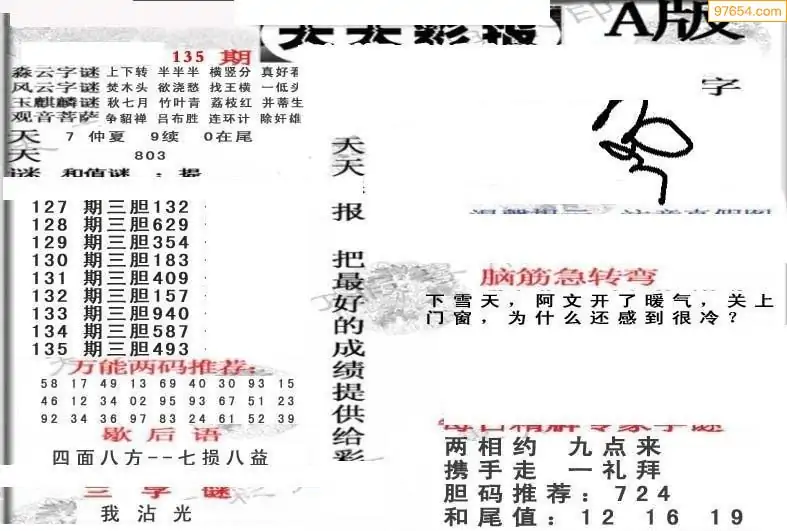 97654.com
天天彩报
A版
135 期
森云字谜 上下转 半半半 横竖分 真好看
风云字谜 焚木头 欲浇愁 找王横 一低头
玉麒麟谜 秋七月 竹叶青 荔枝红 并蒂生
观音菩萨 争貂禅 吕布胜 连环计 除奸雄
天 7 仲夏 9续 0在尾
天 803
谜 和值谜 :
127 期三胆132
128 期三胆629
129 期三胆354
130 期三胆183
131 期三胆409
132 期三胆157
133 期三胆940
134 期三胆587
135 期三胆493
万能两码推荐:
58 17 49 13 69 40 30 93 15
46 12 34 02 95 93 67 51 23
92 34 36 97 83 24 61 52 39
歇后语
四面八方--七损八益
三字谜
我沾光
天天报 把最好的成绩提供给彩
字
脑筋急转弯
下雪天，阿文开了暖气，关上
门窗，为什么还感到很冷？
每日精解专家字谜
两相约 九点来
携手走 一礼拜
胆码推荐：724
和尾值：12 16 19